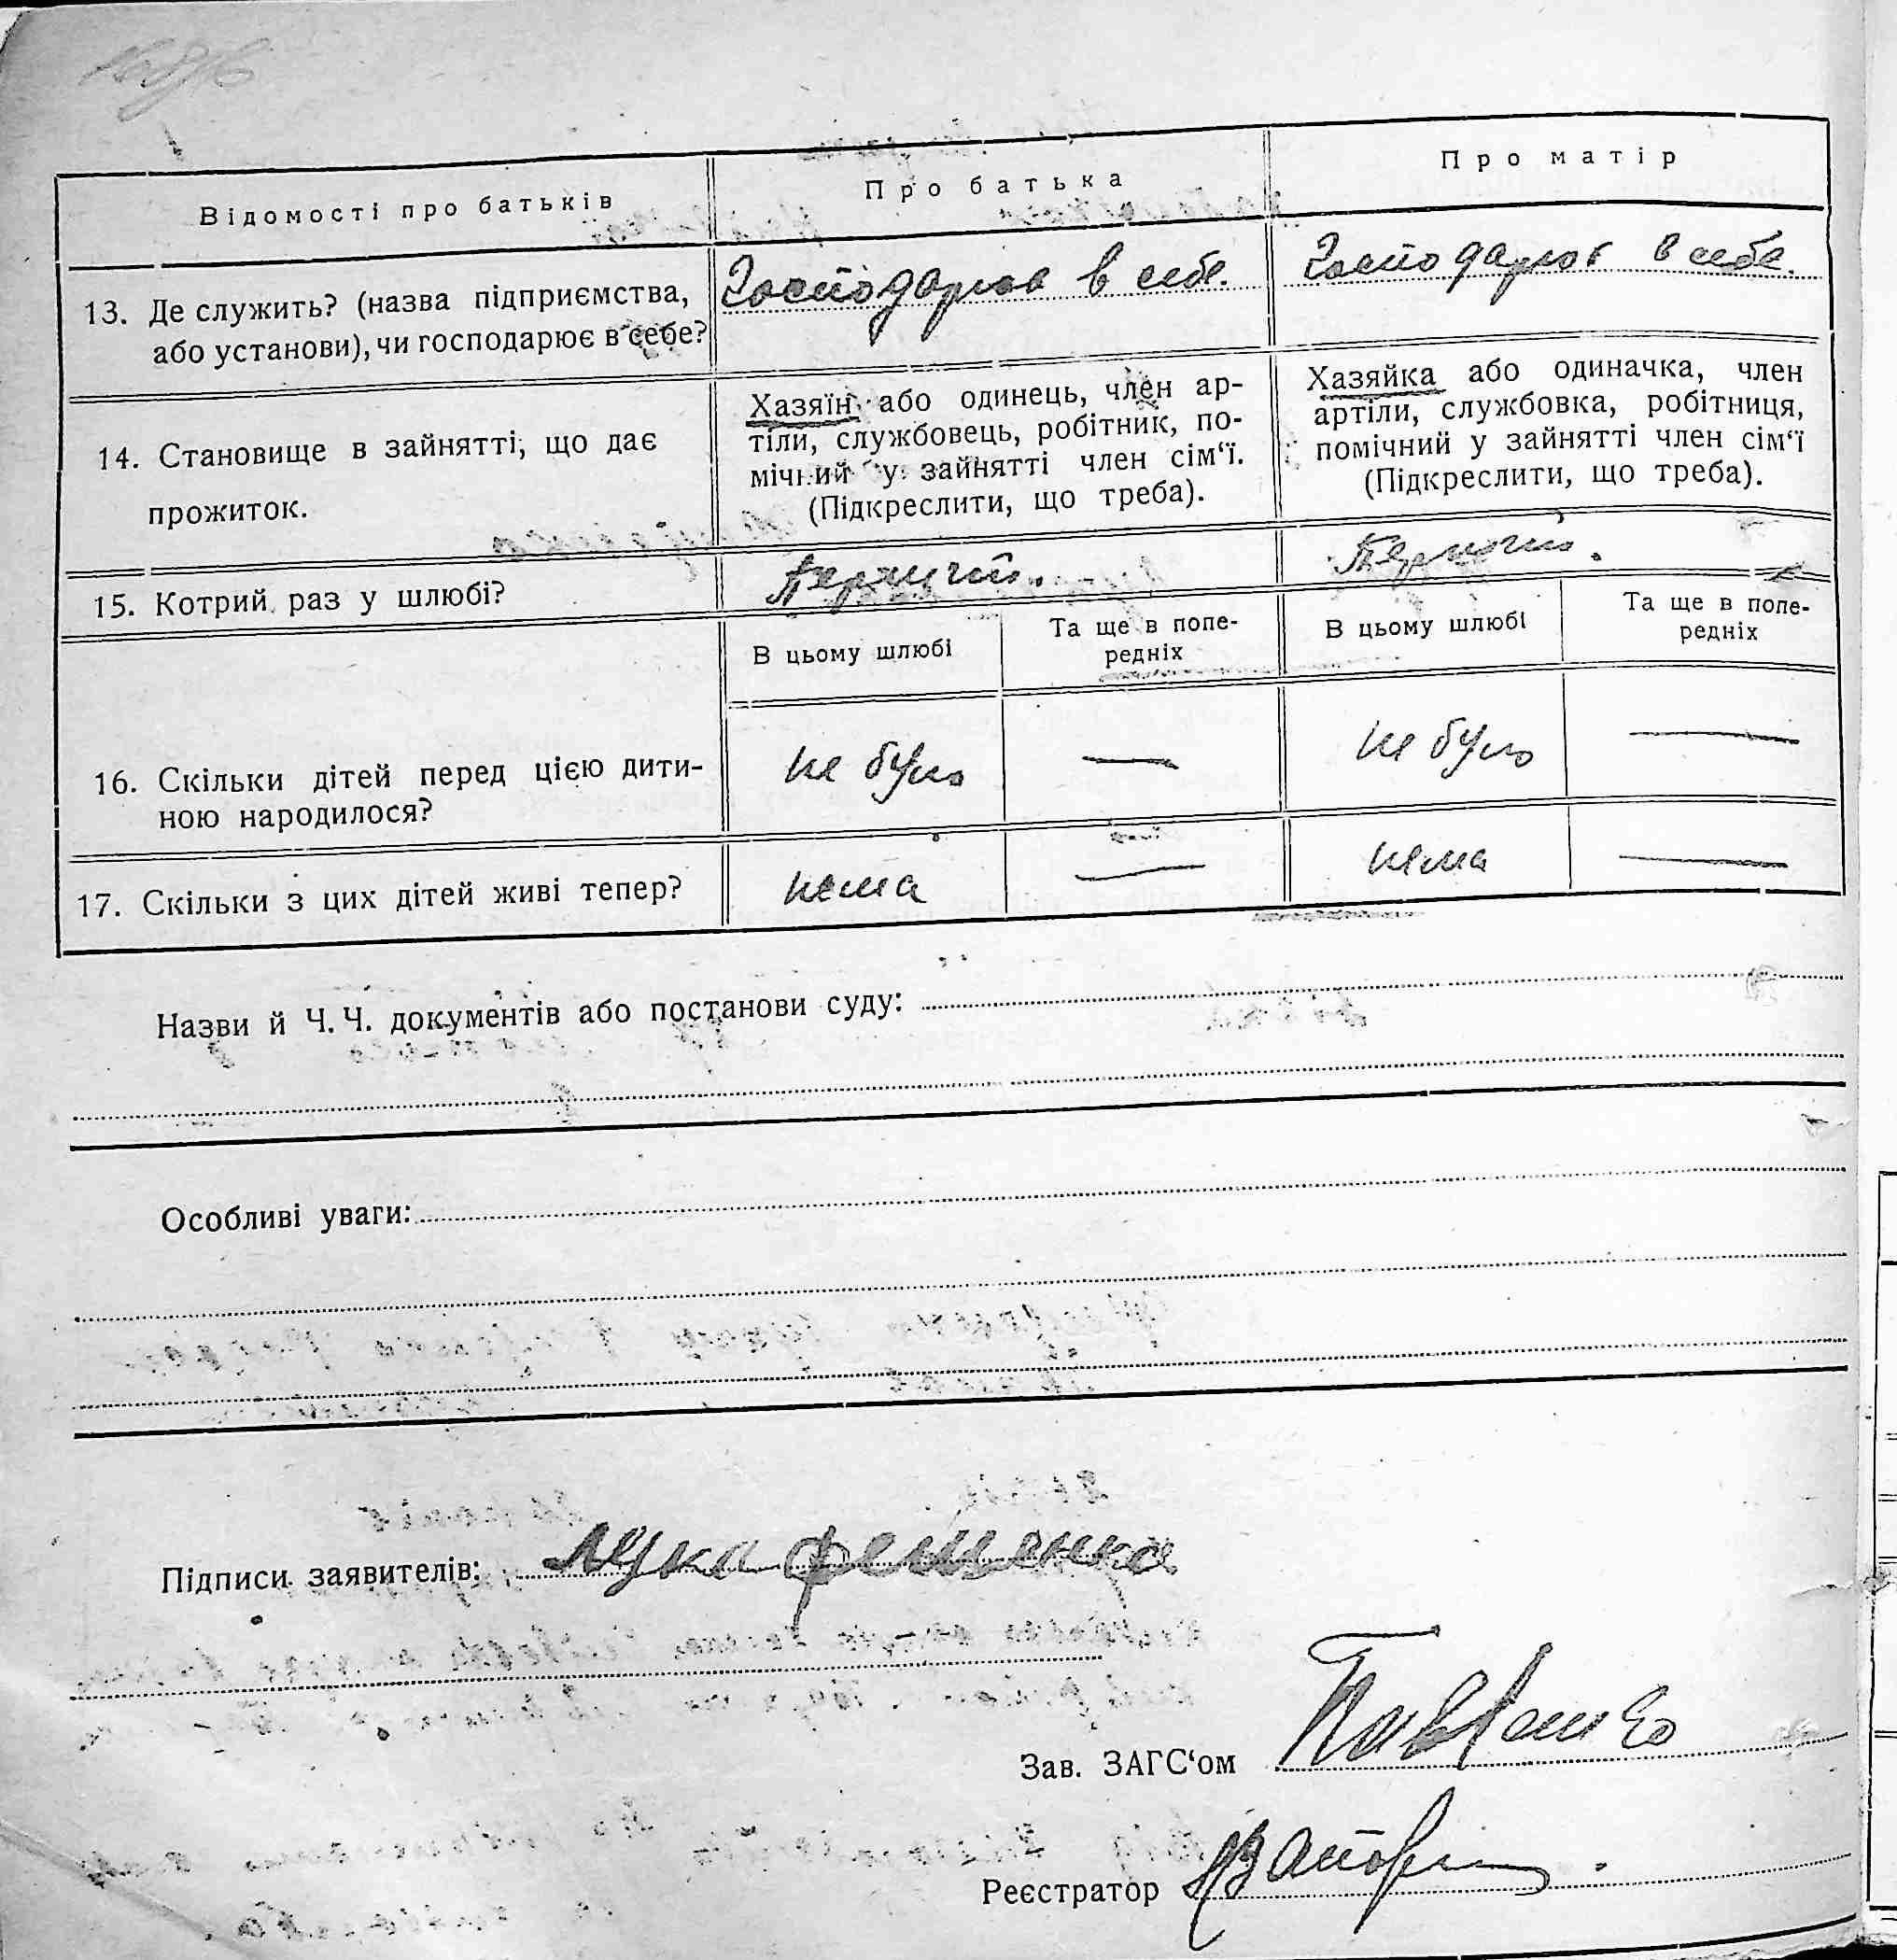 Відомості про батьків
Про батька
Про матір
13. Де служить? (назва підприємства,
або установи), чи господарює в себе?
Господарює в себе.
Господарює в себе.
14. Становище в зайнятті, що дає
прожиток.
Хазяїн або одинець, член ар-
тіли, службовець, робітник, по-
мічний у зайнятті член сім‘ї.
(Підкреслити, що треба).
Хазяйка або одиначка, член
артіли, службовка, робітниця,
помічний у зайнятті член сім‘ї
(Підкреслити, що треба).
15. Котрий раз у шлюбі?
В цьому шлюбі
Та ще в попе-
редніх
В цьому шлюбі
Та ще в попе-
редніх
16. Скільки дітей перед цією дити-
ною народилося?
не було
—
не було
—
17. Скільки з цих дітей живі тепер?
нема
—
нема
—
Назви й Ч. Ч. документів або постанови суду:
Особливі уваги:
Підписи заявителів: Лука Фещенко
Зав. ЗАГС‘ом
Реєстратор